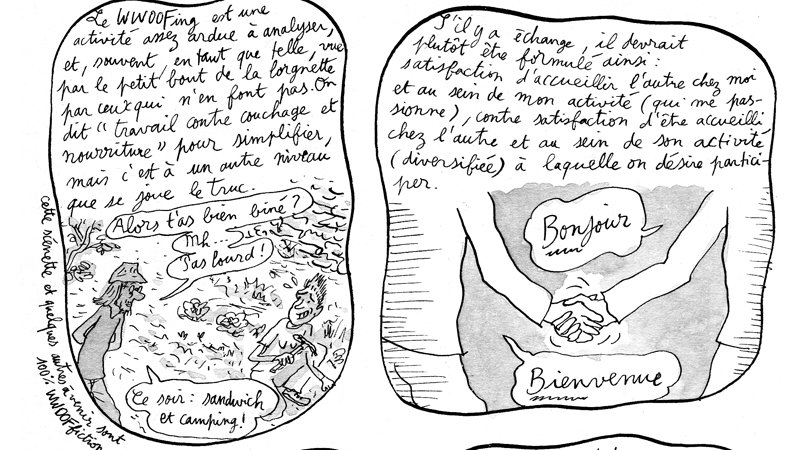 Le WWOOFing est une
activité assez ardue à analyser,
et, souvent, en tant que telle, vue
par le petit bout de la lorgnette
par ceux qui n'en font pas. On
dit "travail contre couchage et
nourriture" pour simplifier,
mais c'est à un autre niveau
que se joue le truc.
Alors t'as bien biné ?
Mh...
T'as lourd !
Ce soir : sandwich
et camping !
cette scénette et quelques autres à venir sont
100% WWOOFfiction
S'il y a échange, il devrait
plutôt être formulé ainsi :
satisfaction d'accueillir l'autre chez moi
et au sein de mon activité (qui me pas-
sionne), contre satisfaction d'être accueilli
chez l'autre et au sein de son activité
(diversifiée) à laquelle on désire partici-
per.
Bonjour
Bienvenue